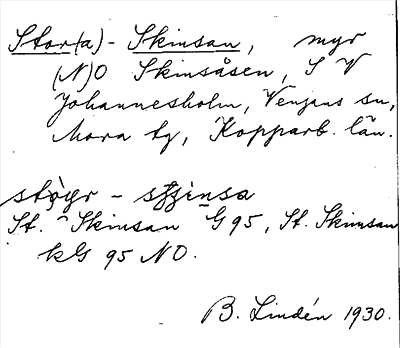 Stor(a)- Skinsan, myr
(N)O Skinsåsen, S V
Johannesholm, Venjans sn,
Mora tg, Kopparb. län.
St. Skinsan G 95, St. Skinsan
kG 95 NO.
B. Lindén 1930.